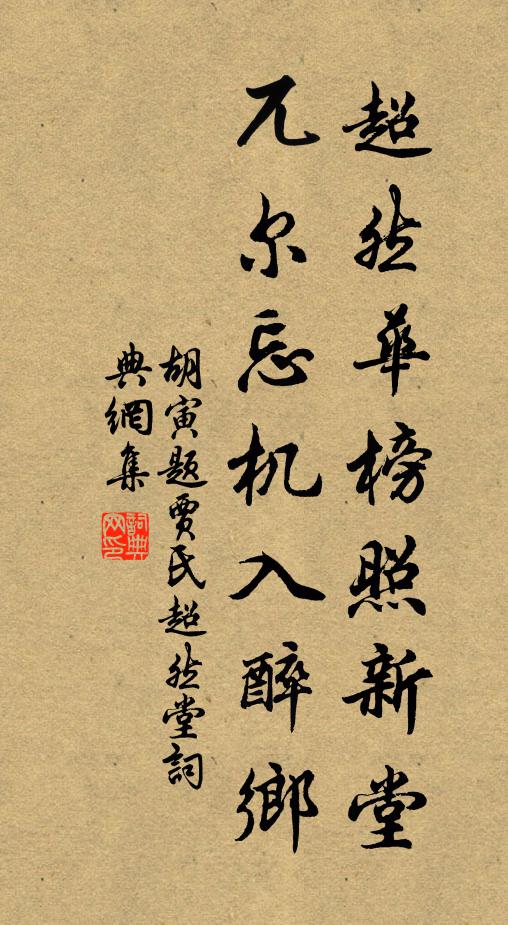 超然華榜照新堂
兀尔忘机入醉鄉
胡寅题賈氏超然堂詞
典網集
詞典
网印